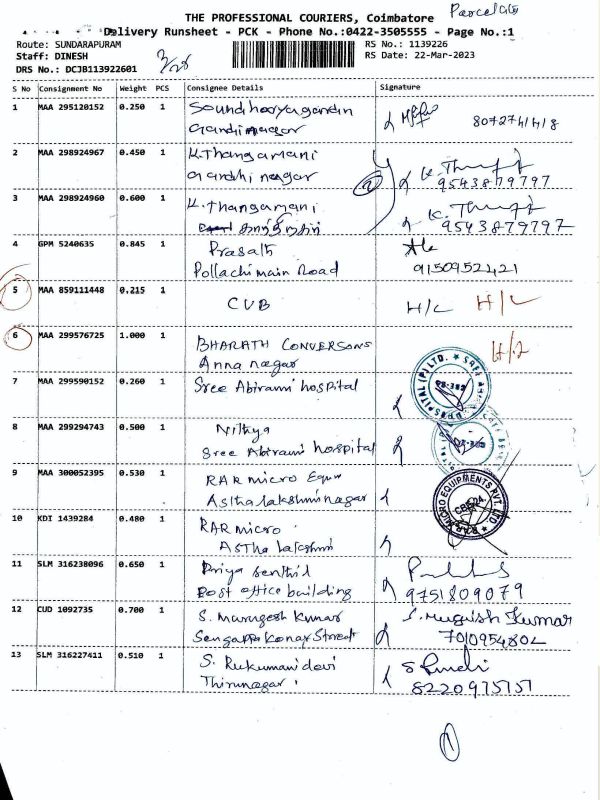 THE PROFESSIONAL COURIERS, Coimbatore
Delivery Runsheet - PCK - Phone No.:0422-3505555 - Page No.:1
Route: SUNDARAPURAM
RS No.: 1139226
Staff: DINESH
RS Date: 22-Mar-2023
DRS No.: DCJB113922601
S No Consignment No Weight PCS Consignee Details Signature
1 MAA 295120152 0.250 1
Gandhinagar
2 MAA 298924967 0.450 1 K.Thangamani
Gandhi nagar
9543879797
3 MAA 298924960 0.600 1 K.Thangamani
9543879797
4 GPM 5240635 0.845 1 Prasath
Pollachi main Road
9150952421
5 MAA 859111448 0.215 1 CUB H/L H/L
6 MAA 299576725 1.000 1 BHARATH CONVERSONS
Anna nagar
7 MAA 299590152 0.260 1 Sree Abirami hospital
8 MAA 299294743 0.500 1 Nithya
Sree Abirami hospital
9 MAA 300052395 0.530 1 RAR micro Equip
Asthalakshminagar
10 KDI 1439284 0.480 1 RAR micro
Astha lakshmi
11 SLM 316238096 0.650 1 Priya Senthil
Post office building 9751809079
12 CUD 1092735 0.700 1 S. Murugesh Kumar S. Mugish Kumar
Sengappa Konar Street 7010954802
13 SLM 316227411 0.510 1 S. Rukumani devi
Thirunagar 8220975757
1